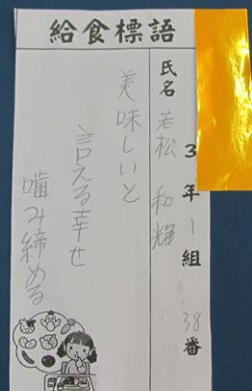 給食標語
3年1組38番
氏名 若松 和輝
美味しいと
言える幸せ
噛み締める